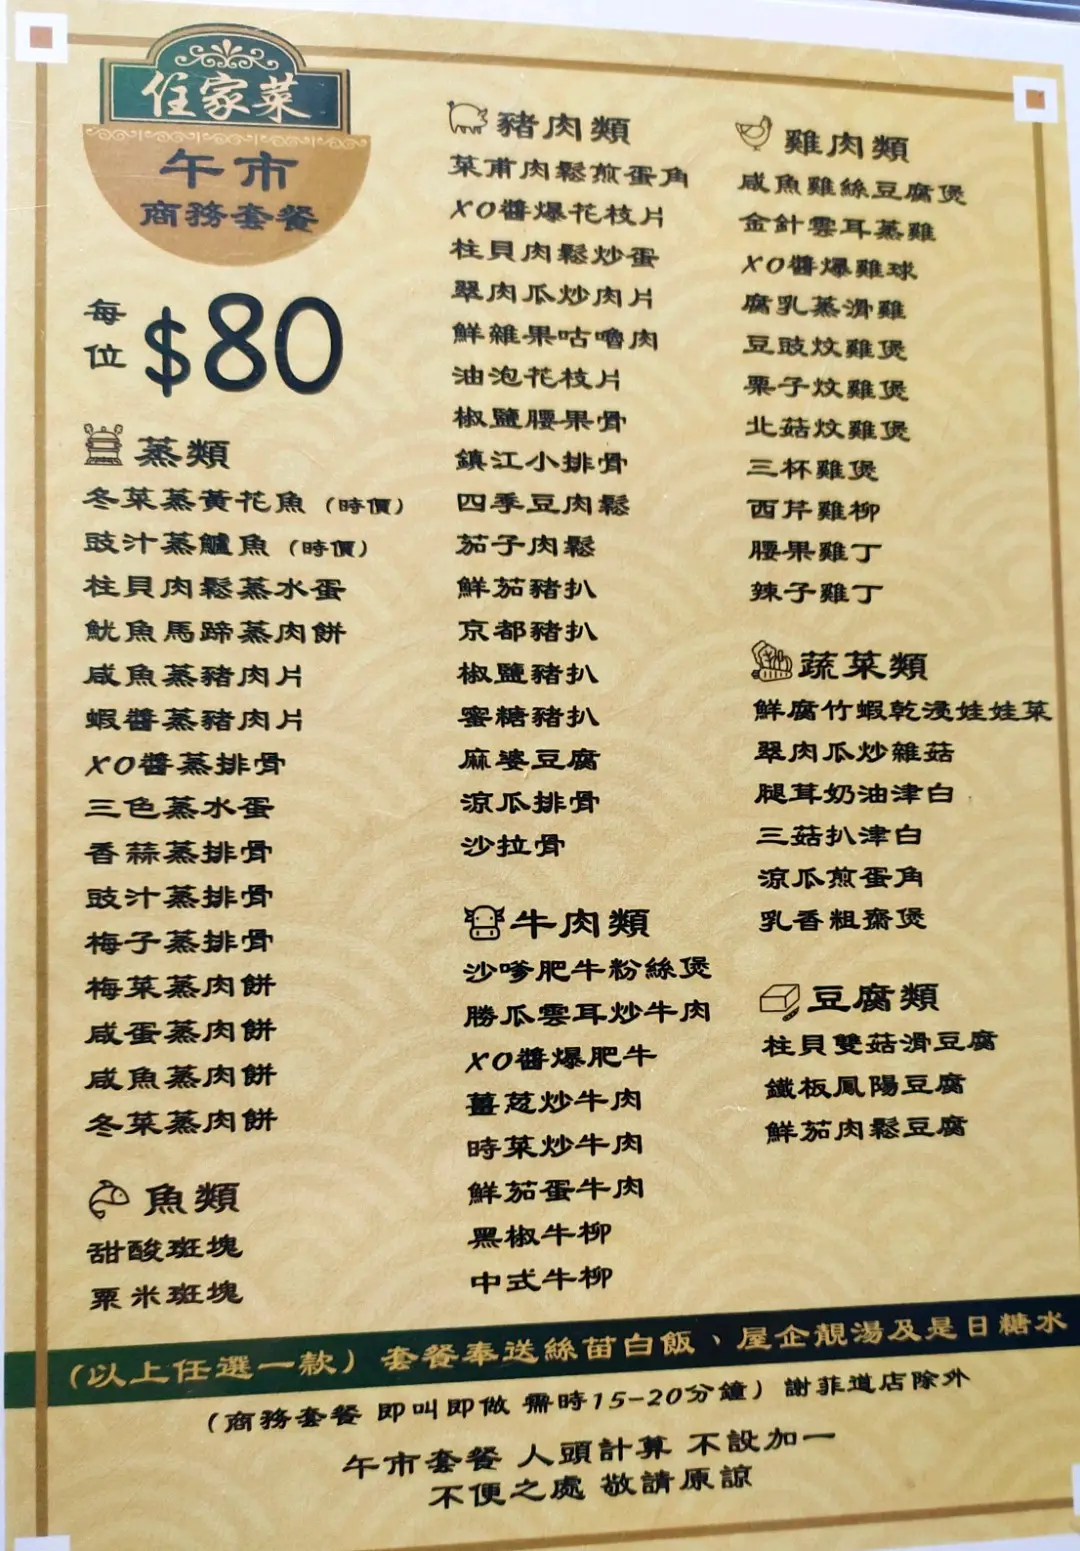 住家菜
午市
商務套餐
每位 $80
蒸類
冬菜蒸黃花魚（時價）
豉汁蒸鱸魚（時價）
柱貝肉鬆蒸水蛋
魷魚馬蹄蒸肉餅
咸魚蒸豬肉片
蝦醬蒸豬肉片
XO醬蒸排骨
三色蒸水蛋
香蒜蒸排骨
豉汁蒸排骨
梅子蒸排骨
梅菜蒸肉餅
咸蛋蒸肉餅
咸魚蒸肉餅
冬菜蒸肉餅
魚類
甜酸斑塊
粟米斑塊
豬肉類
菜甫肉鬆煎蛋角
XO醬爆花枝片
柱貝肉鬆炒蛋
翠肉瓜炒肉片
鮮雜果咕嚕肉
油泡花枝片
椒鹽腰果骨
鎮江小排骨
四季豆肉鬆
茄子肉鬆
鮮茄豬扒
京都豬扒
椒鹽豬扒
蜜糖豬扒
麻婆豆腐
涼瓜排骨
沙拉骨
牛肉類
沙嗲肥牛粉絲煲
勝瓜雲耳炒牛肉
XO醬爆肥牛
薑葱炒牛肉
時菜炒牛肉
鮮茄蛋牛肉
黑椒牛柳
中式牛柳
雞肉類
咸魚雞絲豆腐煲
金針雲耳蒸雞
XO醬爆雞球
腐乳蒸滑雞
豆豉炆雞煲
栗子炆雞煲
北菇炆雞煲
三杯雞煲
西芹雞柳
腰果雞丁
辣子雞丁
蔬菜類
鮮腐竹蝦乾浸娃娃菜
翠肉瓜炒雜菇
腿茸奶油津白
三菇扒津白
涼瓜煎蛋角
乳香粗齋煲
豆腐類
柱貝雙菇滑豆腐
鐵板鳳陽豆腐
鮮茄肉鬆豆腐
（以上任選一款）套餐奉送絲苗白飯、屋企靚湯及是日糖水
（商務套餐 即叫即做 需時15-20分鐘）謝菲道店除外
午市套餐 人頭計算 不設加一
不便之處 敬請原諒